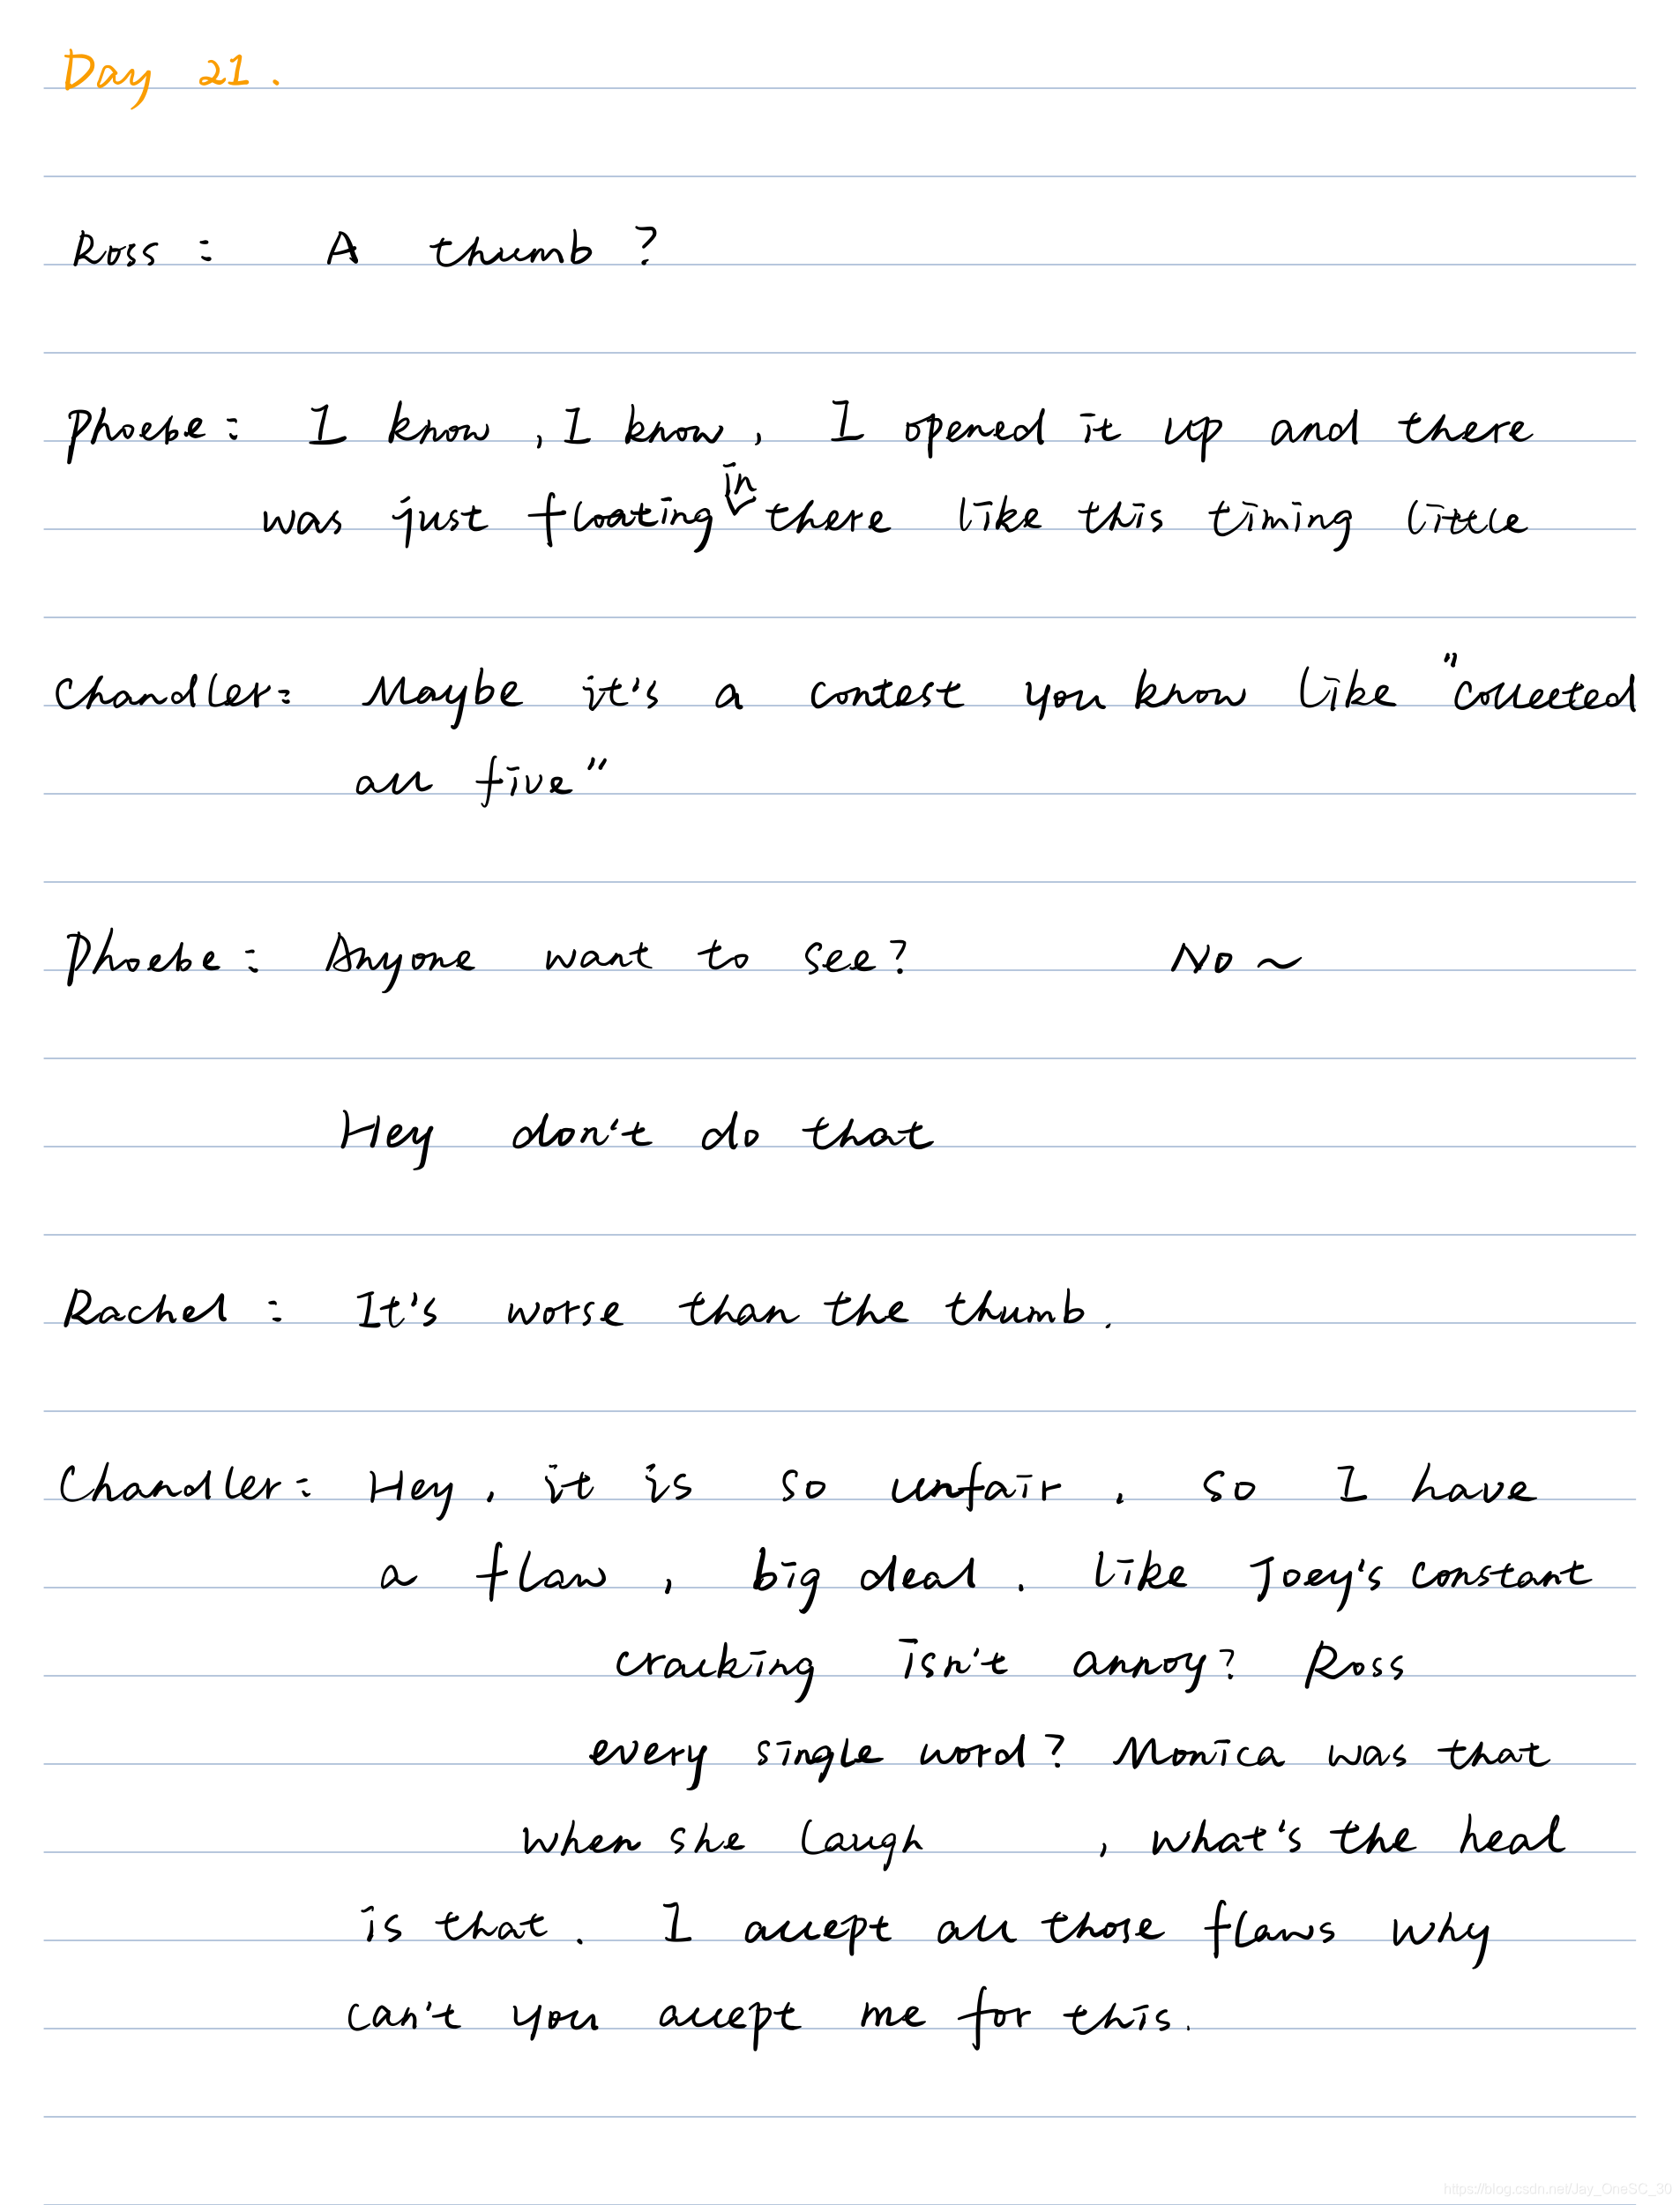 Day 21.
Ross: A thumb?
Phoebe: I know, I know, I opened it up and there
was just floating in there like this timing little
Chandler: Maybe it's a contest you know like "collected
all five"
Phoebe: Anyone want to see? No~
Hey don't do that
Rachel: It's worse than the thumb.
Chandler: Hey, it is so unfair, so I have
a flaw, big deal. like Joey's constant
cracking isn't annoy? Ross
every single word? Monica was that
when she laugh , what's the heal
is that. I accept all those flaws why
can't you accept me for this.
https://blog.csdn.net/Jay_OneSC_30